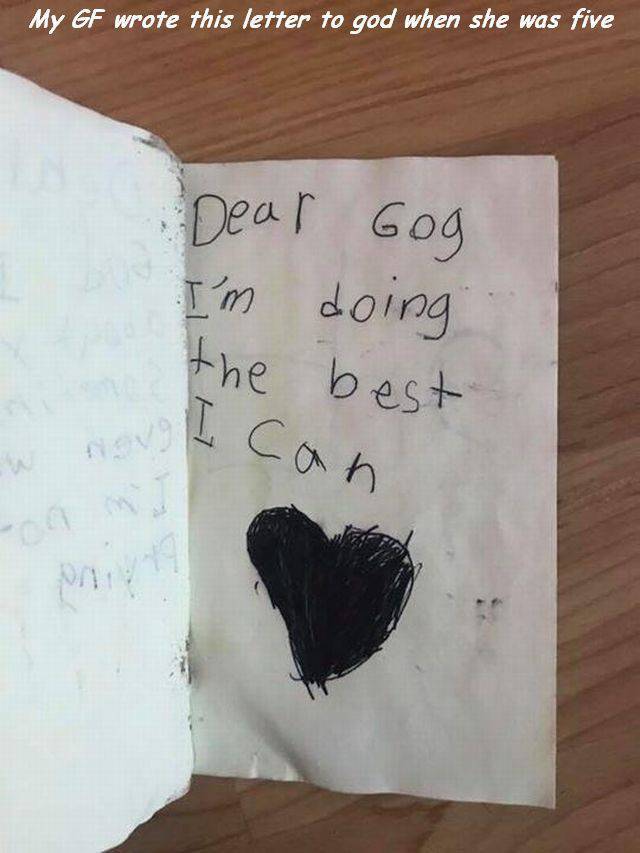 My GF wrote this letter to god when she was five
Dear Gog
I'm doing
the best
I can